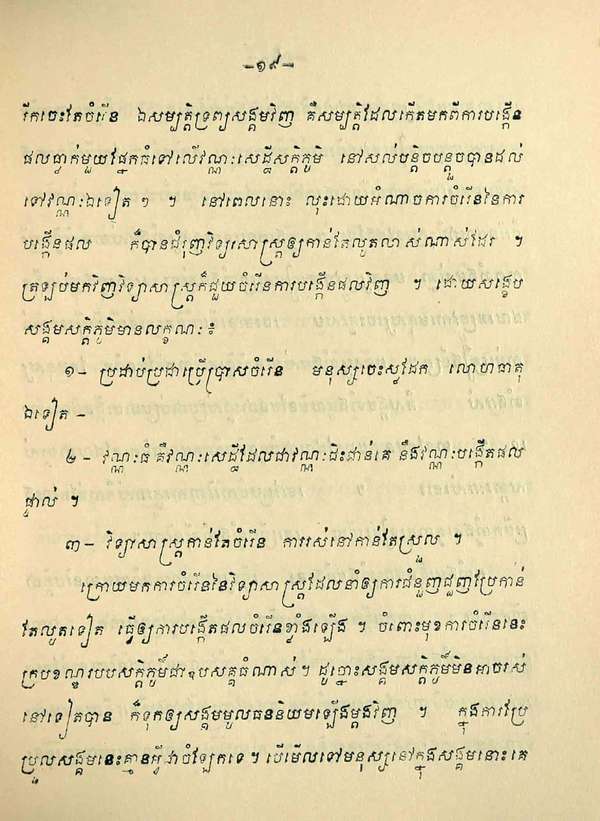 –១៩–
រីកចេះតែចំរើន ឯសម្បត្តិទ្រព្យសង្គមវិញ គឺសម្បត្តិដែលកើតមកពីការបង្កើន
ផលធ្លាក់មួយផ្នែកធំទៅលើវណ្ណៈសេដ្ឋីសក្តិភូមិ នៅសល់បន្តិចបន្តួចបានដល់
ទៅវណ្ណៈឯទៀត ១ ។ នៅពេលនោះ លុះដោយអំណាចការចំរើននៃការ
បង្កើនផល ក៏បានជំរុញវិទ្យាសាស្ត្រឲ្យកាន់តែលូតលាស់ណាស់ដែរ ។
ត្រឡប់មកវិញវិទ្យាសាស្ត្រក៏ជួយចំរើនការបង្កើនផលវិញ ។ ដោយសង្ខេប
សង្គមសក្តិភូមិមានលក្ខណៈ៖
១– ប្រដាប់ប្រដាប្រើប្រាសចំរើន មនុស្សចេះស្លដែក លោហធាតុ
ឯទៀត –
២ – វណ្ណៈធំ គឺវណ្ណៈសេដ្ឋីដែលជាវណ្ណៈជិះជាន់គេ នឹងវណ្ណៈបង្កើតផល
ផ្ទាល់ ។
៣– វិទ្យាសាស្ត្រកាន់តែចំរើន ការរស់នៅកាន់តែស្រួល ។
ក្រោយមកការចំរើននៃវិទ្យាសាស្ត្រដែលនាំឲ្យការជំនួញជួញប្រែកាន់
តែលូតទៀត ធ្វើឲ្យការបង្កើតផលចំរើនខ្លាំងឡើង ។ ចំពោះមុខការចំរើននេះ
ក្របខណ្ឌរបបសក្តិភូមិ៍ជាឧបសគ្គធំណាស់ ។ ដូច្នោះសង្គមសក្តិភូមិ៍មិនអាចរស់
នៅទៀតបាន ក៏ទុកឲ្យសង្គមមូលធននិយមឡើងម្តងវិញ ។ ក្នុងការប្រែ
ប្រួលសង្គមនេះគ្មានអ្វីជាចំឡែកទេ ។ បើមើលទៅមនុស្សនៅក្នុងសង្គមនោះ គេ